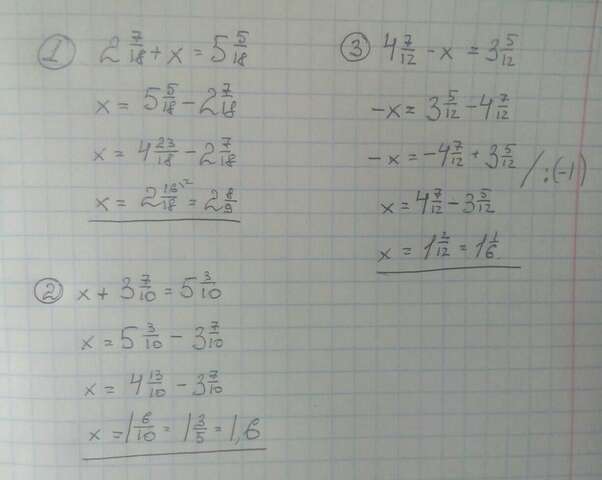 ① 2 7/18 + x = 5 5/18
x = 5 5/18 - 2 7/18
x = 4 23/18 - 2 7/18
x = 2 16/18 :2 = 2 8/9
② x + 3 7/10 = 5 3/10
x = 5 3/10 - 3 7/10
x = 4 13/10 - 3 7/10
x = 1 6/10 = 1 3/5 = 1,6
③ 4 7/12 - x = 3 5/12
-x = 3 5/12 - 4 7/12
-x = -4 7/12 + 3 5/12 / :(-1)
x = 4 7/12 - 3 5/12
x = 1 2/12 = 1 1/6